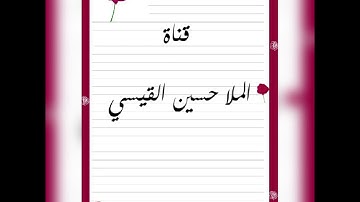 قناة
الملا حسين القيسي